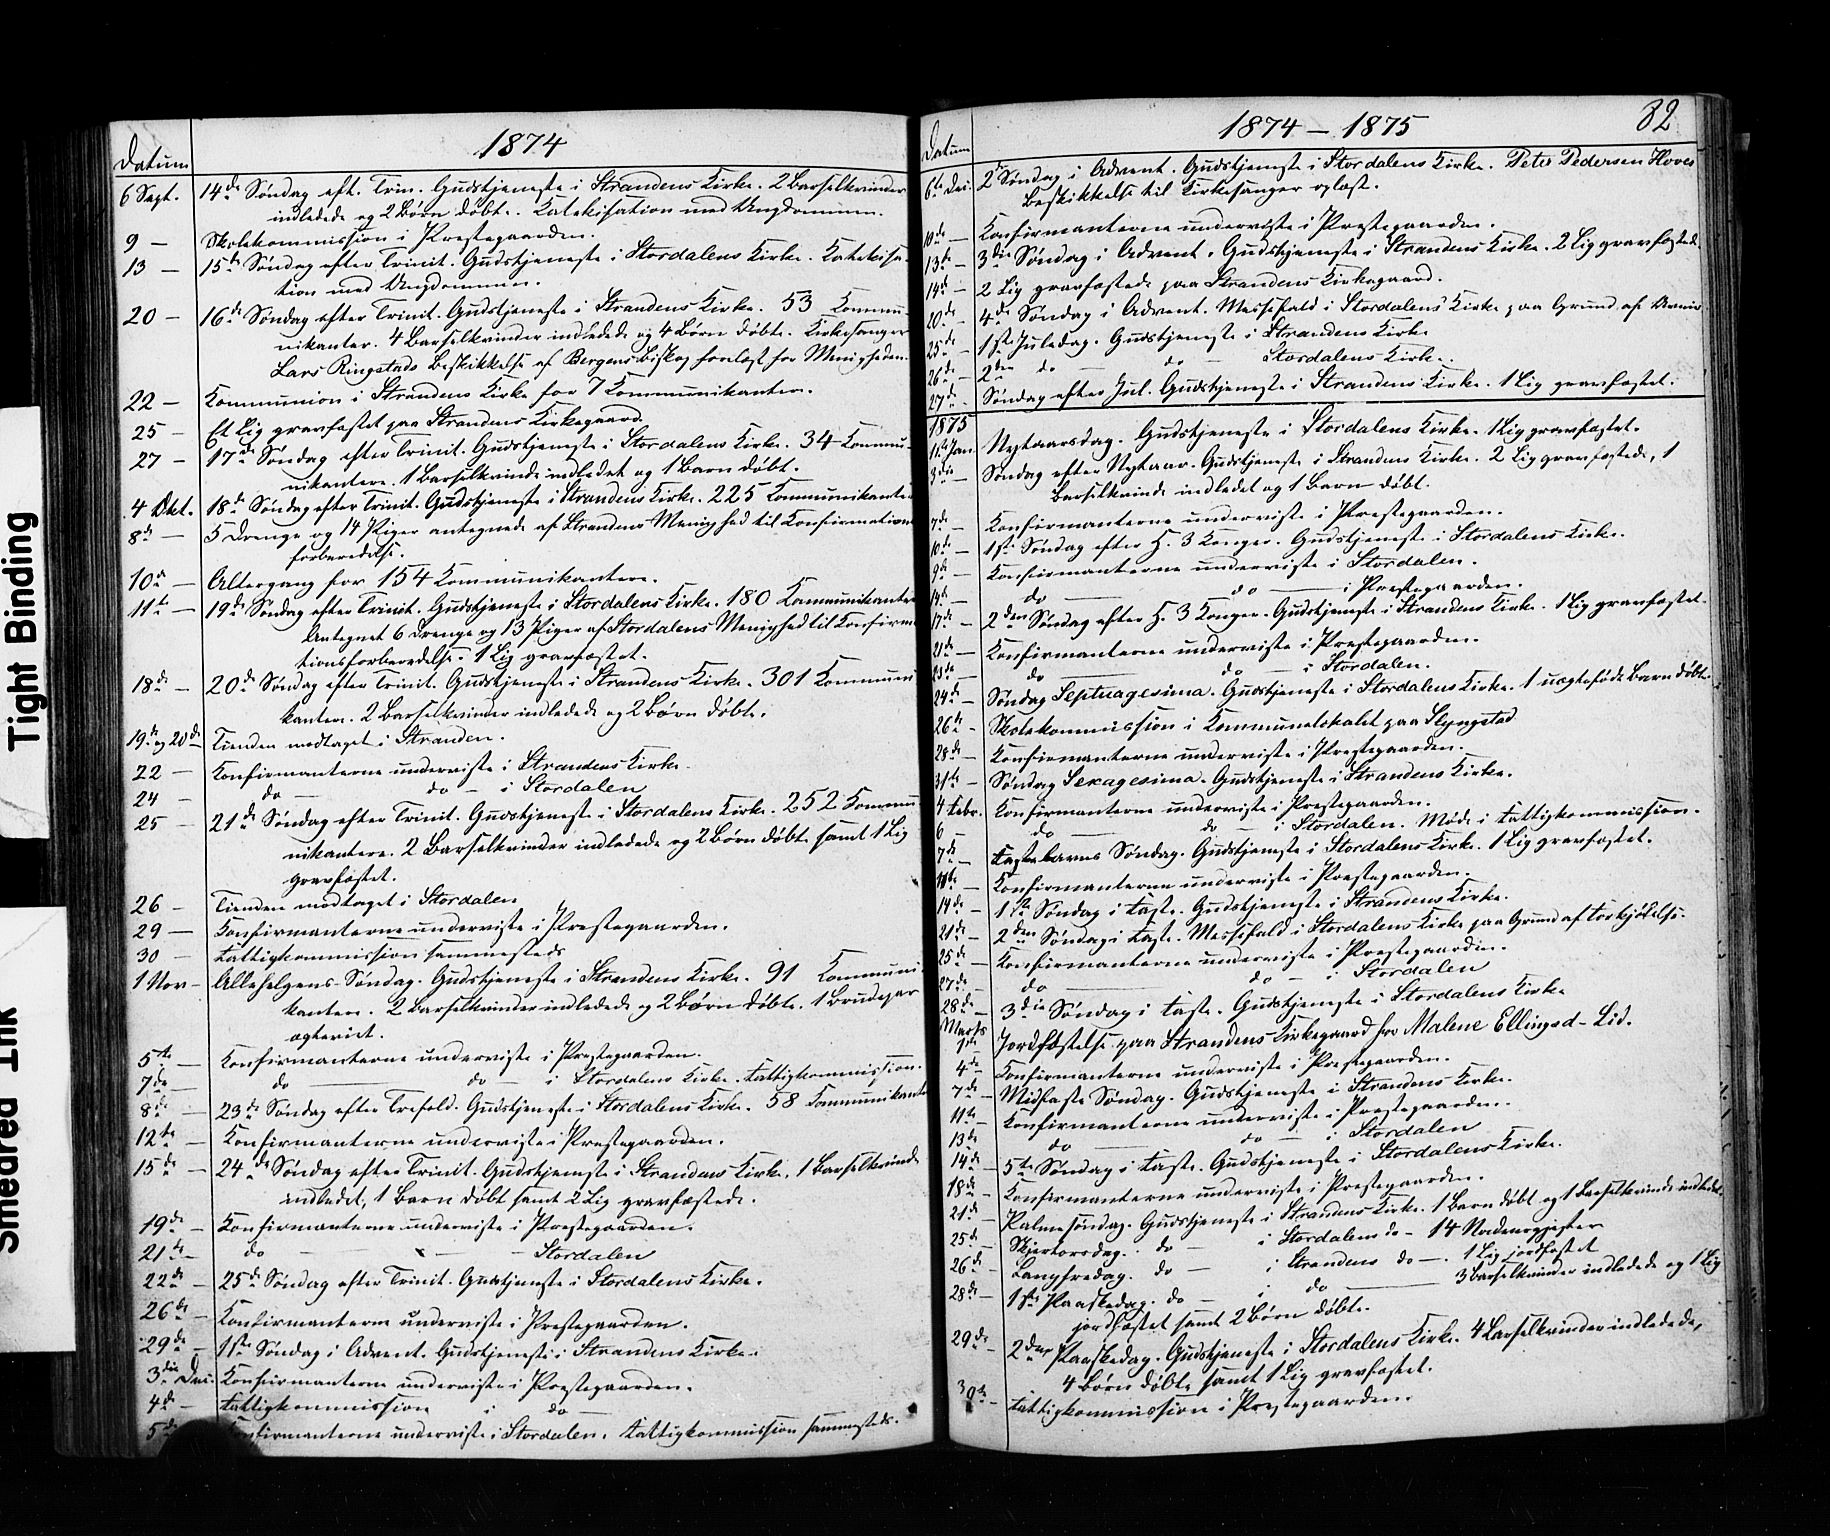 1874
Datum
6 Sept. 14de Søndag eft. Trin. Gudstjeneste i Strandens Kirke. 2 Barselkvinder
indledede og 2 Børn døbte. Katekisation med Ungdommen.
9 — Skolekommission i Prestegaarden.
13 — 15de Søndag efter Trinit. Gudstjeneste i Stordalens Kirke. Katekisa-
tion med Ungdommen.
20 — 16de Søndag efter Trinit. Gudstjeneste i Strandens Kirke. 53 Kommu-
nikanter. 4 Barselkvinder indledede og 4 Børn døbte. Kirkesanger
Lars Ringstads Beskikkelse af Bergens Biskop forelæst for Menigheden.
22 — Kommunion i Strandens Kirke for 7 Kommunikantere.
25 — Et Lig gravfæstet paa Strandens Kirkegaard.
27 — 17de Søndag efter Trinit. Gudstjeneste i Stordalens Kirke. 34 Kommu-
nikantere. 1 Barselkvinde indledet og 1 Barn døbt.
4 Okt. 18de Søndag efter Trinit. Gudstjeneste i Strandens Kirke. 225 Kommunikante
8de — 5 Drenge og 14 Piger antegnede af Strandens Menighed til Konfirmations
forberedelse.
10de — Altergang for 154 Kommunikantere.
11te — 19de Søndag efter Trinit. Gudstjeneste i Stordalens Kirke. 180 Kommunikante
Antegnet 6 Drenge og 13 Piger af Stordalens Menighed til Konfirma
tionsforberedelse. 1 Lig gravfæstet.
18de — 20de Søndag efter Trinit. Gudstjeneste i Strandens Kirke. 301 Kommuni
kantere. 2 Barselkvinder indledede og 2 Børn døbte.
19de og 20de Tienden modtaget i Stranden.
22 — Konfirmanterne underviste i Strandens Kirke.
24 — do — do — i Stordalen
25 — 21de Søndag efter Trinit. Gudstjeneste i Stordalens Kirke. 252 Kommu
nikantere. 2 Barselkvinder indledede og 2 Børn døbte samt 1 Lig
gravfæstet.
26 — Tienden modtaget i Stordalen
29 — Konfirmanterne underviste i Prestegaarden.
30 — Fattigkommission sammesteds
1 Nov — Allehelgens Søndag. Gudstjeneste i Strandens Kirke. 91 Kommuni
kantere. 2 Barselkvinder indledede og 2 Børn døbte. 1 Brudepar
ægteviet.
5te — Konfirmanterne underviste i Prestegaarden.
7de — do — do — i Stordalens Kirke. Fattigkommission.
8de — 23de Søndag efter Trefold. Gudstjeneste i Stordalens Kirke. 58 Kommunikante
12te — Konfirmanterne underviste i Prestegaarden.
15de — 24de Søndag efter Trinit. Gudstjeneste i Strandens Kirke. 1 Barselkvinde
indledet, 1 Barn døbt samt 2 Lig gravfæstede.
19de — Konfirmanterne underviste i Prestegaarden.
21de do — — Stordalen
22de — 25de Søndag efter Trinit. Gudstjeneste i Stordalens Kirke.
26de — Konfirmanterne underviste i Prestegaarden.
29de — 1ste Søndag i Advent. Gudstjeneste i Strandens Kirke.
3die Dec. Konfirmanterne underviste i Prestegaarden.
4de — Fattigkommission i do —
5de Konfirmanterne underviste i Stordalen. Fattigkommission sammesteds.
1874 — 1875
82
Datum
6te Dec. 2den Søndag i Advent. Gudstjeneste i Stordalens Kirke. Peter Pedersen Hoves
Beskikkelse til Kirkesanger oplæst.
10de — Konfirmanterne underviste i Prestegaarden.
13de — 3die Søndag i Advent. Gudstjeneste i Strandens Kirke. 2 Lig gravfæstede
14de — 2 Lig gravfæstede paa Strandens Kirkegaard.
20de — 4de Søndag i Advent. Messefald i Stordalens Kirke paa Grund af Uveir
25de — 1ste Juledag. Gudstjeneste i Strandens Kirke
26de 2den do — do — Stordalens Kirke.
27de — Søndag efter Jul. Gudstjeneste i Strandens Kirke. 1 Lig gravfæstet.
1875
1ste Jan. Nytaarsdag. Gudstjeneste i Stordalens Kirke. 1 Lig gravfæstet.
3die — Søndag efter Nytaar. Gudstjeneste i Strandens Kirke. 2 Lig gravfæstede, 1
Barselkvinde indledet og 1 Barn døbt.
7de — Konfirmanterne underviste i Prestegaarden.
10de — 1ste Søndag efter H. 3 Konger. Gudstjeneste i Stordalens Kirke.
9de — Konfirmanterne underviste i Stordalen.
14de — do — do — i Prestegaarden.
17de — 2den Søndag efter H. 3 Konger. Gudstjeneste i Strandens Kirke. 1 Lig gravfæstet.
21de — Konfirmanterne underviste i Prestegaarden.
23de — do — do — i Stordalen.
24de — Søndag Septuagesima. Gudstjeneste i Stordalens Kirke. 1 uægtefødt Barn døbt.
26de — Skolekommission i Kommunelokalet paa Slyngstad
28de — Konfirmanterne underviste i Prestegaarden.
31te — Søndag Sexagesima. Gudstjeneste i Strandens Kirke.
4 Febr. Konfirmanterne underviste i Prestegaarden.
6 — do — do — i Stordalen. Møde i Fattigkommission.
7de — Fastelavns Søndag. Gudstjeneste i Stordalens Kirke. 1 Lig gravfæstet.
11te — Konfirmanterne underviste i Prestegaarden.
14de — 1ste Søndag i Faste. Gudstjeneste i Strandens Kirke.
21de — 2den Søndag i Faste. Messefald i Stordalens Kirke paa Grund af Forkjølelse.
25de — Konfirmanterne underviste i Prestegaarden.
27de — do — do — i Stordalen
28de — 3die Søndag i Faste. Gudstjeneste i Stordalens Kirke
Marts 1ste Jordfæstelse paa Strandens Kirkegaard for Malene Ellingsd. Lid.
4de — Konfirmanterne underviste i Prestegaarden.
7de — Midfaste Søndag. Gudstjeneste i Strandens Kirke.
11te — Konfirmanterne underviste i Prestegaarden.
13de — do — do — i Stordalen
14de — 5te Søndag i Faste. Gudstjeneste i Stordalens Kirke.
18de — Konfirmanterne underviste i Prestegaarden.
21de — Palmesøndag. Gudstjeneste i Strandens Kirke. 1 Barn døbt og 1 Barselkvinde indledet
25de — Skjertorsdag. do — i Stordalens do — 14 Nadvergjester
26de — Langfredag. do — i Strandens do —. 1 Lig jordfæstet
28de — 1ste Paaskedag. do — i do — 3 Barselkvinder indledede og 1 Lig
jordfæstet samt 2 Børn døbte.
29de — 2den Paaskedag. Gudstjeneste i Stordalens Kirke. 4 Barselkvinder indledede,
4 Børn døbte samt 1 Lig gravfæstet.
30te — Fattigkommission i Prestegaarden.
Tight Binding
Smeared Ink